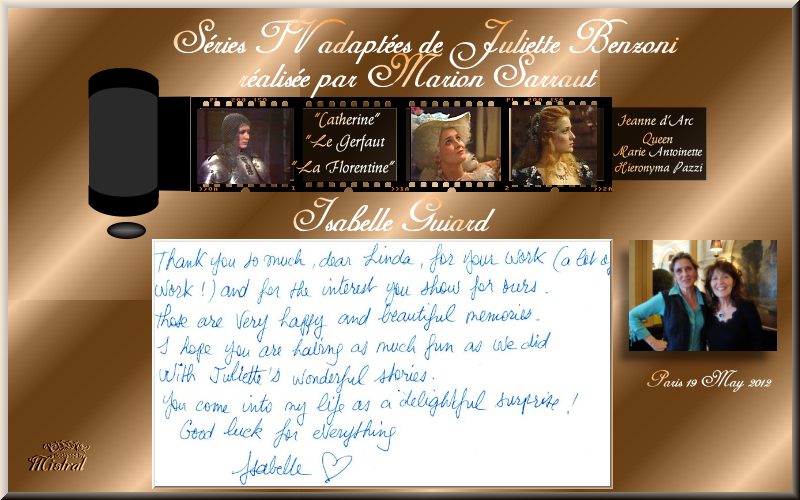 Séries TV adaptées de Juliette Benzoni
réalisée par Marion Sarraut
"Catherine"
"Le Gerfaut
"La Florentine"
Jeanne d'Arc
Queen
Marie Antoinette
Hieronyma Pazzi
Isabelle Guiard
Thank you so much, dear Linda, for your work (a lot of
work!) and for the interest you show for ours.
Those are very happy and beautiful memories.
I hope you are having as much fun as we did
with Juliette's wonderful stories.
You come into my life as a delightful surprise!
Good luck for everything
Isabelle
Paris 19 May 2012
Mistral